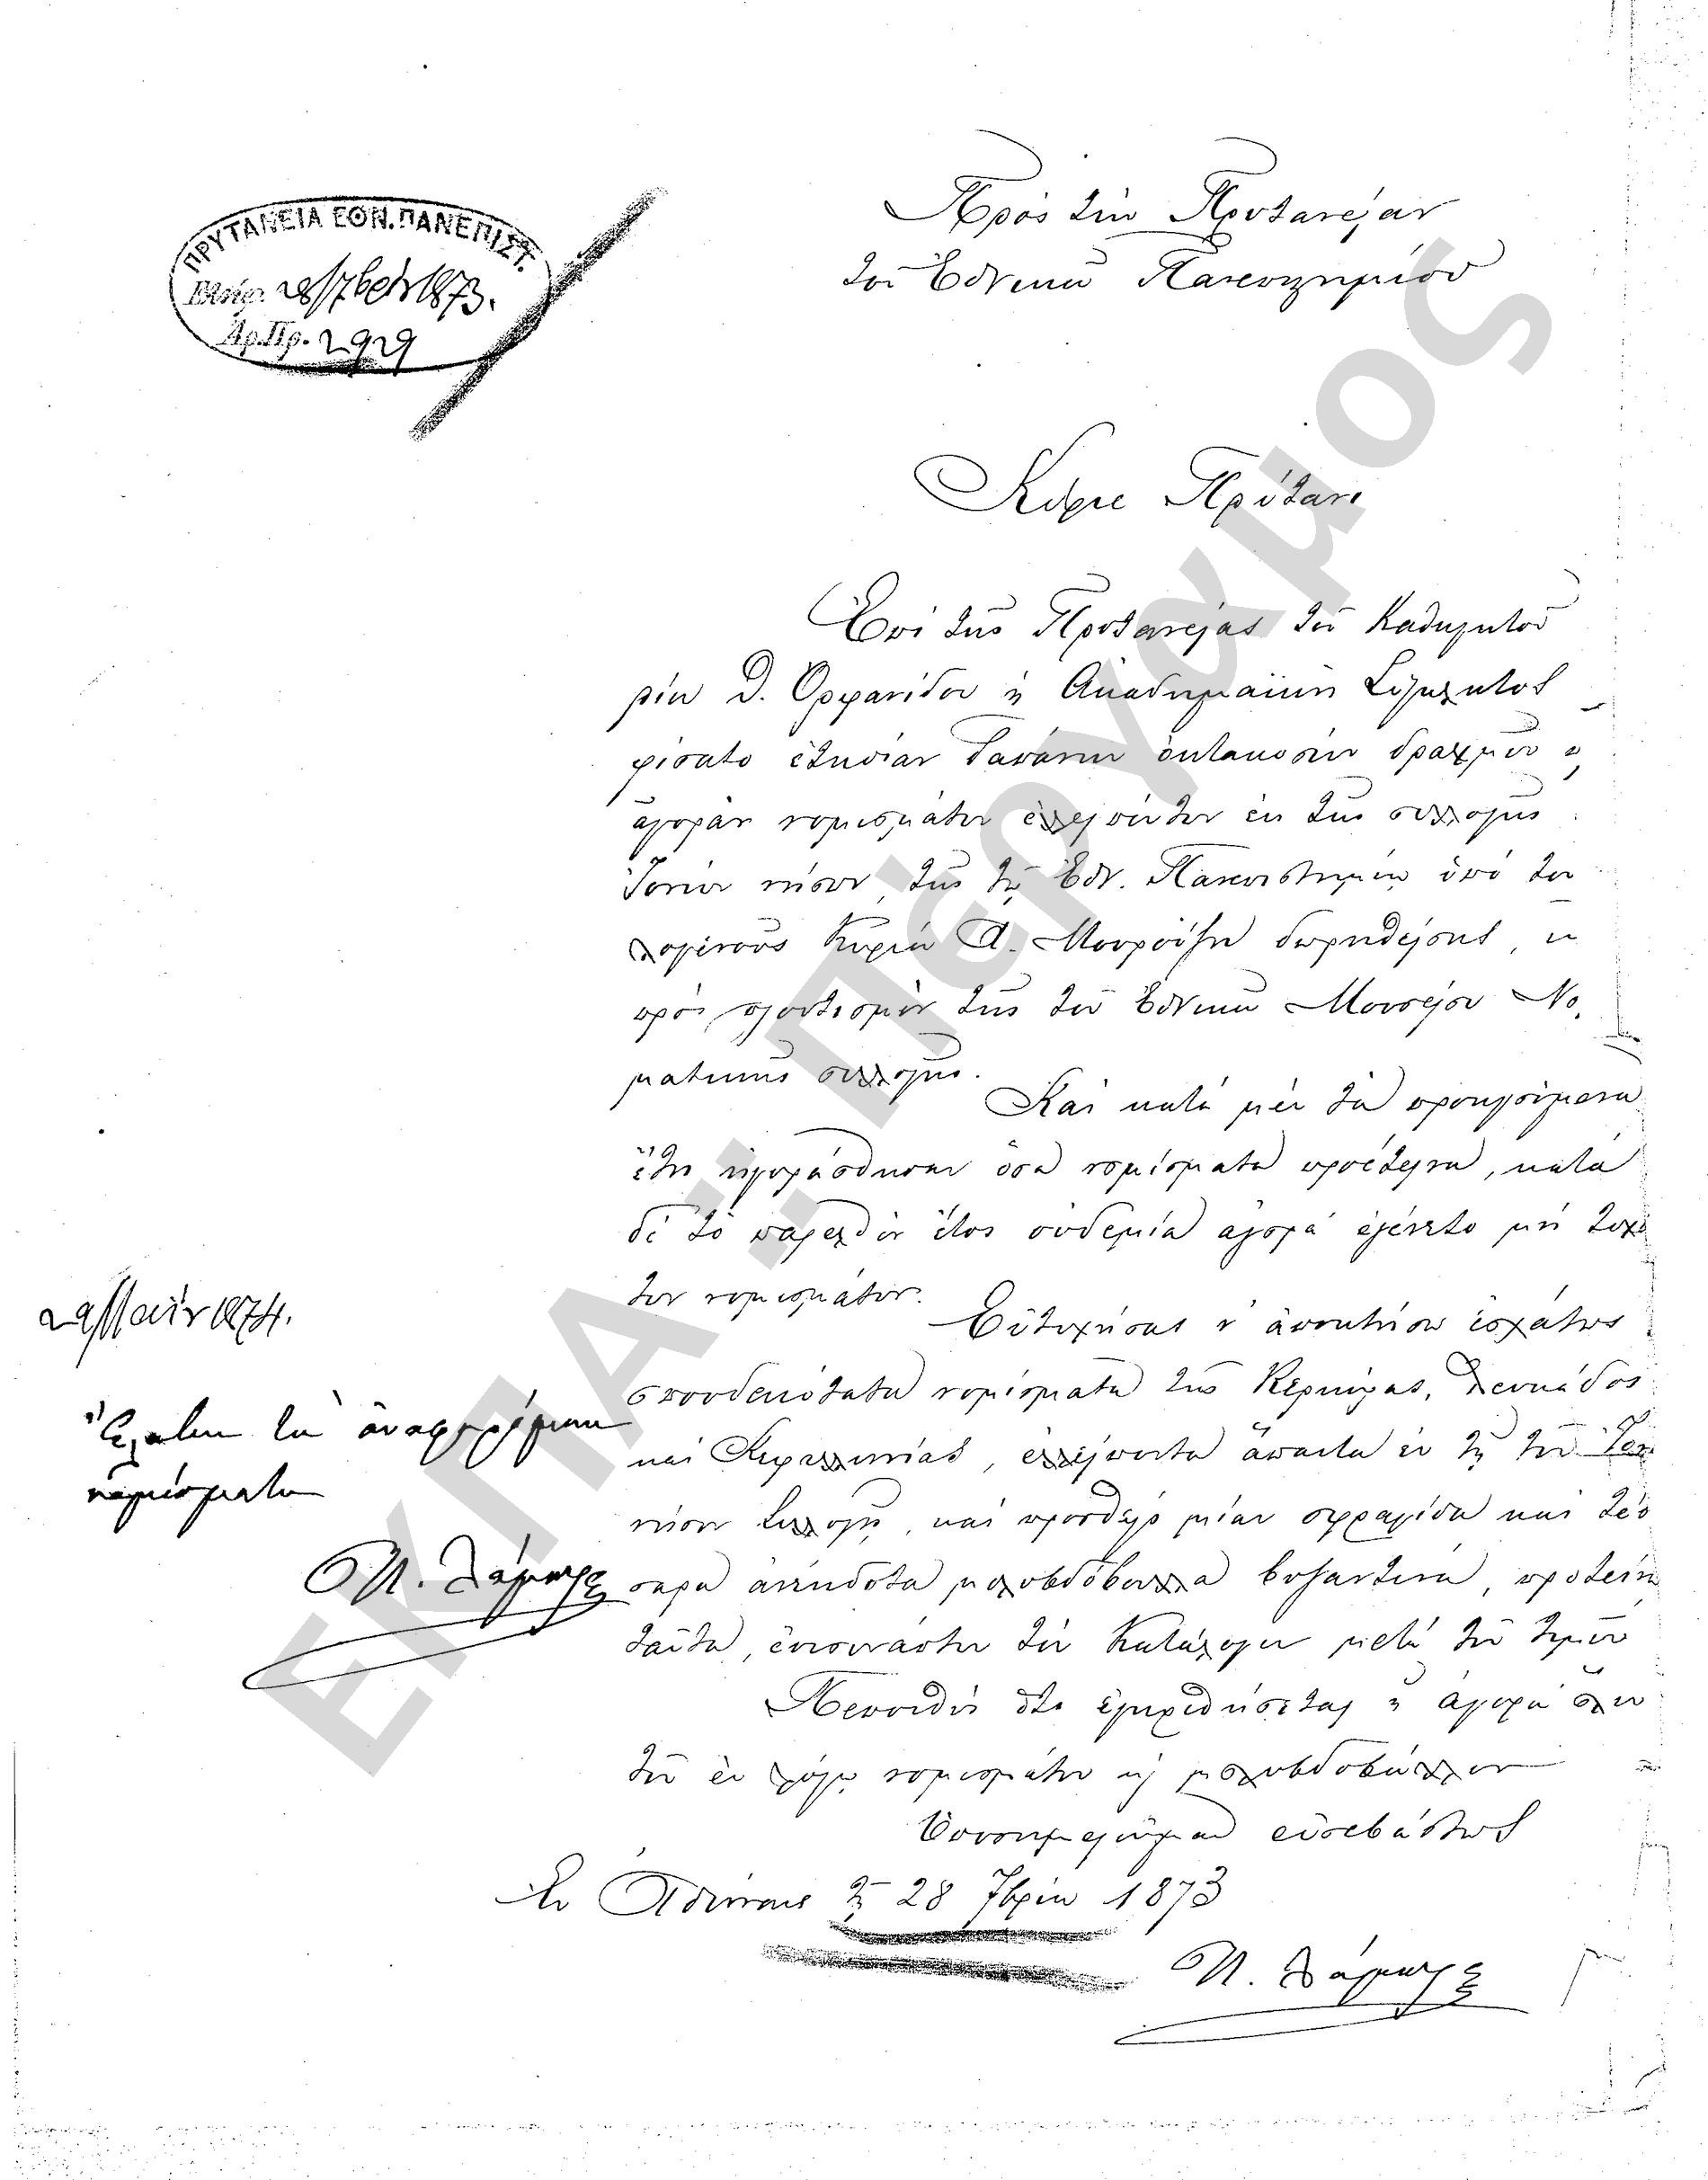 ΠΡΥΤΑΝΕΙΑ ΕΘΝ. ΠΑΝΕΠΙΣΤ.
28/7βρίου 1873.
Ἀρ. Πρ. 2929
Πρὸς τὴν Πρυτανείαν
τοῦ Ἐθνικοῦ Πανεπιστημίου
Κύριε Πρύτανι
Ἐπὶ τῆς Πρυτανείας τοῦ Καθηγητοῦ
Κυρίου Θ. Ὀρφανίδου ἡ Ἀκαδημαϊκὴ Σύγκλητος
φίσατο ἐτησίαν δαπάνην ὀκτακοσίων δραχμῶν
ἀγορὰν νομισμάτων ἐλλειπόντων ἐκ τῆς συλλογῆς
Ἰονίων νήσων, τῆς τῷ Ἐθν. Πανεπιστημίῳ ὑπὸ τοῦ
λογένους Κυρίου Α. Μουρούζη δωρηθείσης,
πρὸς πλουτισμὸν τῆς τοῦ Ἐθνικοῦ Μουσείου Νο
ματικῆς συλλογῆς.
Καὶ κατὰ μὲν τὰ προηγούμενα
ἔτη ἠγοράσθησαν ὅσα νομίσματα προέτεινα, κατὰ
δὲ τὸ παρελθὸν ἔτος οὐδεμία ἀγορὰ ἐγένετο μὴ τυχό
των νομισμάτων.
Εὐτυχήσας ν' ἀποκτήσω ἐσχάτως
σπουδαιότατα νομίσματα τῆς Κερκύρας, Λευκάδος
καὶ Κεφαλληνίας, ἐλλείποντα ἅπαντα ἐκ τῆς τῶν Ἰον
νήσων Συλλογῆς, καὶ προσθεὶς μίαν σφραγῖδα καὶ τέσ
σαρα ἀνέκδοτα μολυβδόβουλλα βυζαντινά, προτείνω
ταῦτα, ἐπισυνάπτων τὸν Κατάλογον μετὰ τῶν τιμῶν
Πεποιθὼς ὅτι ἐγκριθήσεται ἡ ἀγορὰ ὅλων
τῶν ἐν λόγῳ νομισμάτων καὶ μολυβδοβούλλων
Ὑποσημειοῦμαι εὐσεβάστως
Ἐν Ἀθήναις τῇ 28 7βρίου 1873
Π. Λάμπρος
29 Μαΐου 1874.
Ἔλαβον τὰ ἀναφερόμενα
νομίσματα
Π. Λάμπρος
ΕΚΠΑ : Πέργαμος